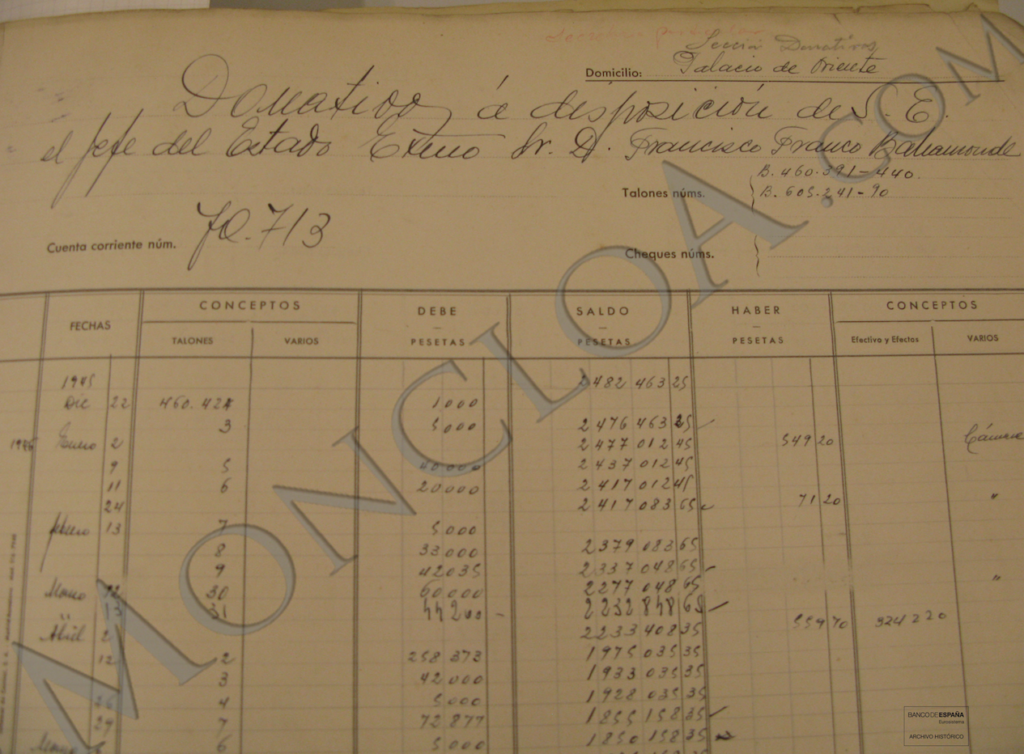 Sección Donativos
Domicilio: Palacio de Oriente
Donativos á disposición de S. E.
el Jefe del Estado Exmo Sr. D. Francisco Franco Bahamonde
Talones núms. B. 460.391-440.
B. 605.241-90
Cuenta corriente núm. 713
Cheques núms.
FECHAS CONCEPTOS DEBE SALDO HABER CONCEPTOS
TALONES VARIOS PESETAS PESETAS PESETAS Efectivo y Efectos VARIOS
1945 2 482 463 25
Dic 22 1.000
3 5.000 2 476 463 25
Enero 2 2 477 012 45 549 20
9 5 40.000 2 437 012 45
11 6 20000 2 417 012 45
24 2 417 083 65 71 20 "
febrero 13 7 5.000
8 33000 2379 083 65
9 42035 2337 048 65 "
Marzo 12 30 60000 2277 048 65
31 44200 2232 848 65
Abril 2 2233 408 35 559 70
12 2 258 373 1975 035 35
3 42000 1933 035 35
4 5000 1928 035 35
7 72 877 1855 158 35
6 5000 1850 158 35
MONCLOA.COM
BANCO DE ESPAÑA
ARCHIVO HISTÓRICO